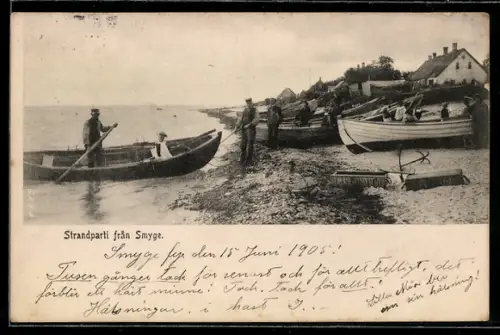 Strandparti från Smyge.
Smyge fyr den 15 Juni 1905!
Tusen gånger tack för senast och för allt trefligt, det
förblir ett kärt minne! Tack, tack för allt!
Hälsningar, i hast
Lilla Mor ber
om sin hälsning!